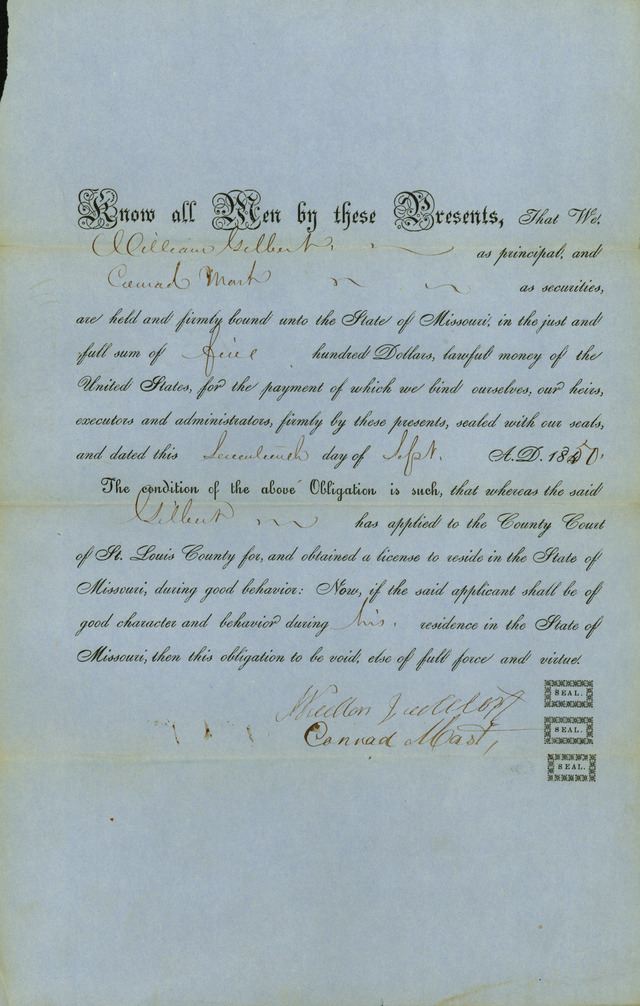 Know all Men by these Presents, That We,
William Gilbert as principal, and
Conrad Mast as securities,
are held and firmly bound unto the State of Missouri, in the just and
full sum of five hundred Dollars, lawful money of the
United States, for the payment of which we bind ourselves, our heirs,
executors and administrators, firmly by these presents, sealed with our seals,
and dated this Seventeenth day of Sept. A.D. 1850,
The condition of the above Obligation is such, that whereas the said
Gilbert has applied to the County Court
of St. Louis County for, and obtained a license to reside in the State of
Missouri, during good behavior: Now, if the said applicant shall be of
good character and behavior during his residence in the State of
Missouri, then this obligation to be void, else of full force and virtue.
SEAL.
Conrad Mast, SEAL.
SEAL.